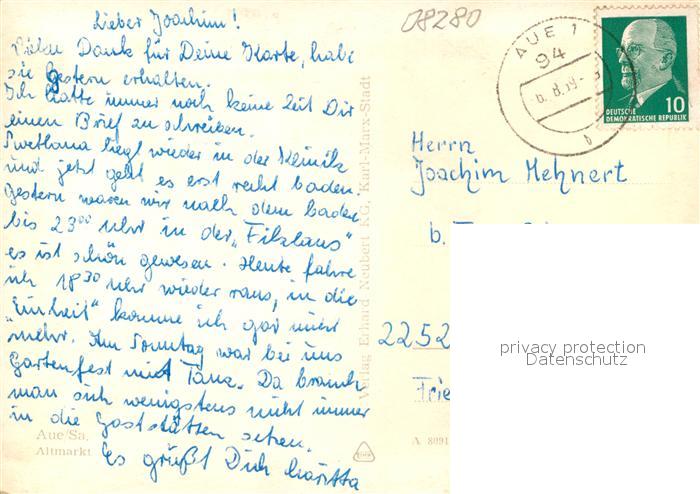 Lieber Joachim!
Vielen Dank für Deine Karte, habe
sie gestern erhalten.
Ich hatte immer noch keine Zeit Dir
einen Brief zu schreiben.
Swetlana liegt wieder in der Klinik
und jetzt geht es erst recht baden.
Gestern waren wir nach dem baden
bis 23⁰⁰ Uhr in der "Filzlaus"
es ist schön gewesen. Heute fahre
ich 18³⁰ Uhr wieder raus, in die
"Einheit" komme ich gar nicht
mehr. Am Sonntag war bei uns
Gartenfest mit Tanz. Da braucht
man sich wenigstens nicht immer
in die Gaststätten setzen.
Es grüßt Dich
Aue/Sa.
Altmarkt
Verlag Erhard Neubert KG, Karl-Marx-Stadt
A 8091
08280
AUE 1
94
b
DEUTSCHE
DEMOKRATISCHE REPUBLIK
10
Herrn
Joachim Mehnert
b.
2252
privacy protection
Datenschutz